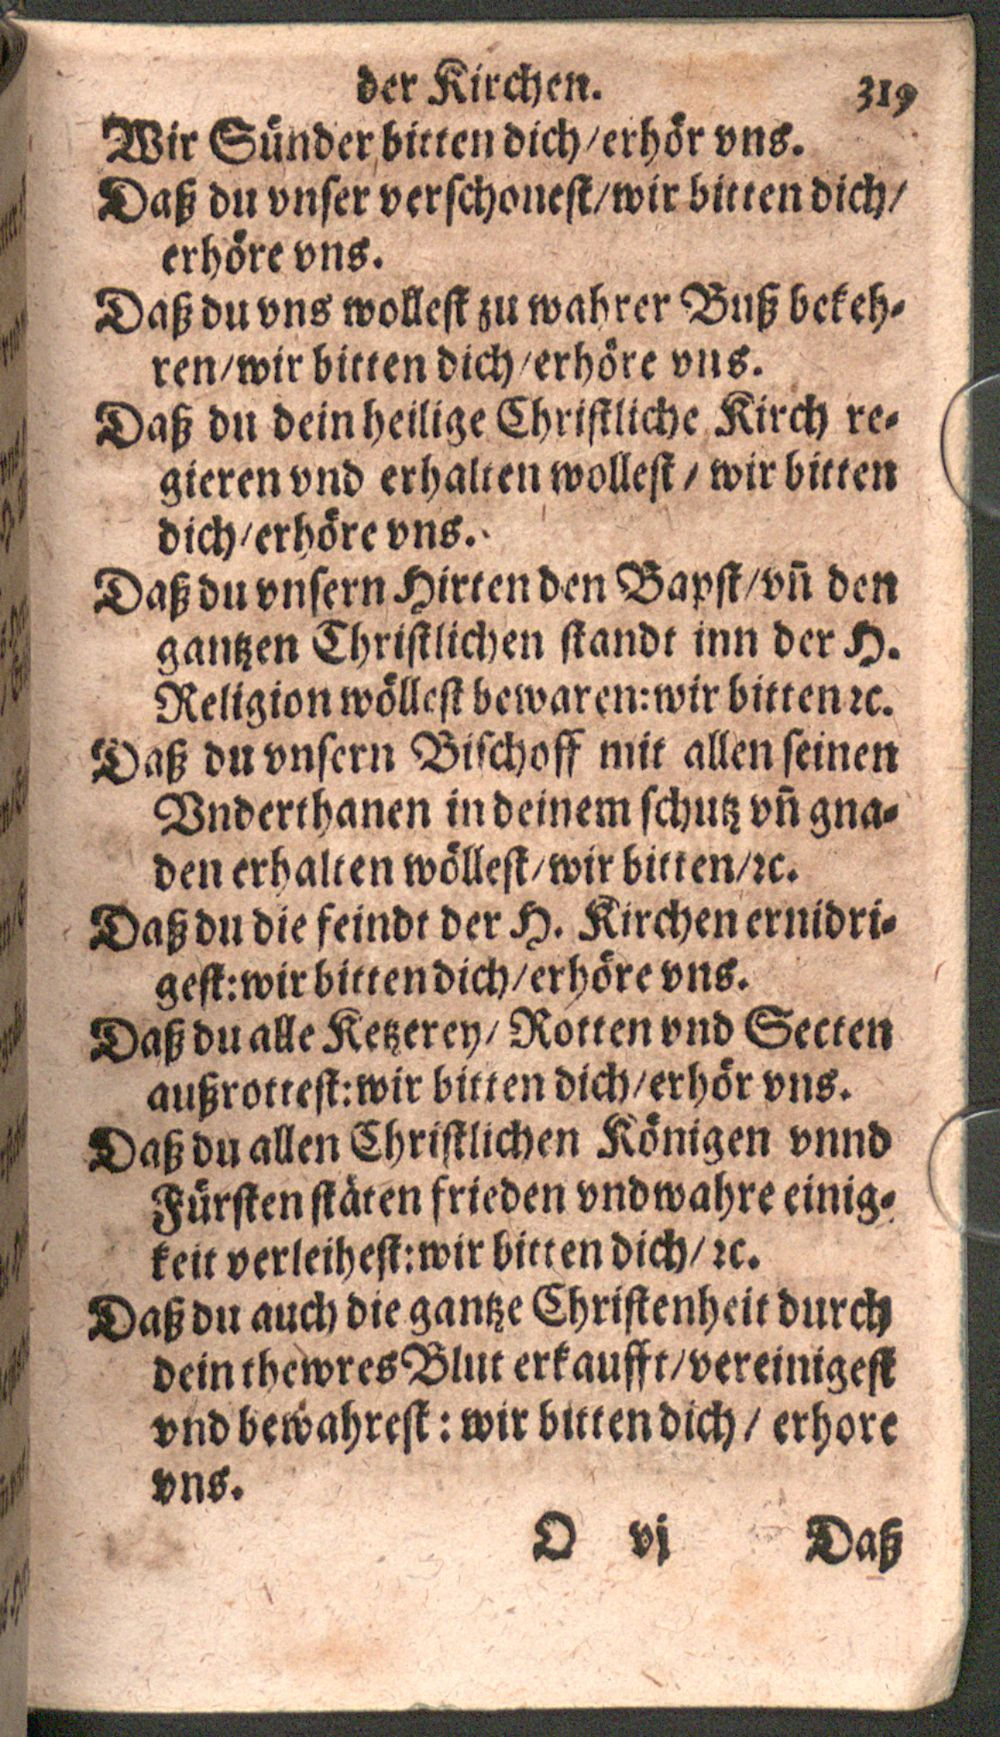 der Kirchen. 319
Wir Sünder bitten dich/erhör vns.
Daß du vnser verschonest/wir bitten dich/
erhöre vns.
Daß du vns wollest zu wahrer Buß bekeh-
ren/wir bitten dich/erhöre vns.
Daß du dein heilige Christliche Kirch re-
gieren vnd erhalten wollest/ wir bitten
dich/erhöre vns.
Daß du vnsern Hirten den Bapst/vñ den
gantzen Christlichen standt inn der H.
Religion wöllest bewaren:wir bitten ꝛc.
Daß du vnsern Bischoff mit allen seinen
Vnderthanen in deinem schutz vñ gna-
den erhalten wöllest/wir bitten/ꝛc.
Daß du die feindt der H. Kirchen ernidri-
gest:wir bitten dich/erhöre vns.
Daß du alle Ketzerey/ Rotten vnd Secten
außrottest:wir bitten dich/erhör vns.
Daß du allen Christlichen Königen vnnd
Fürsten stäten frieden vnd wahre einig-
keit verleihest:wir bitten dich/ ꝛc.
Daß du auch die gantze Christenheit durch
dein thewres Blut erkaufft/vereinigest
vnd bewahrest: wir bitten dich/ erhore
vns.
O vj Daß